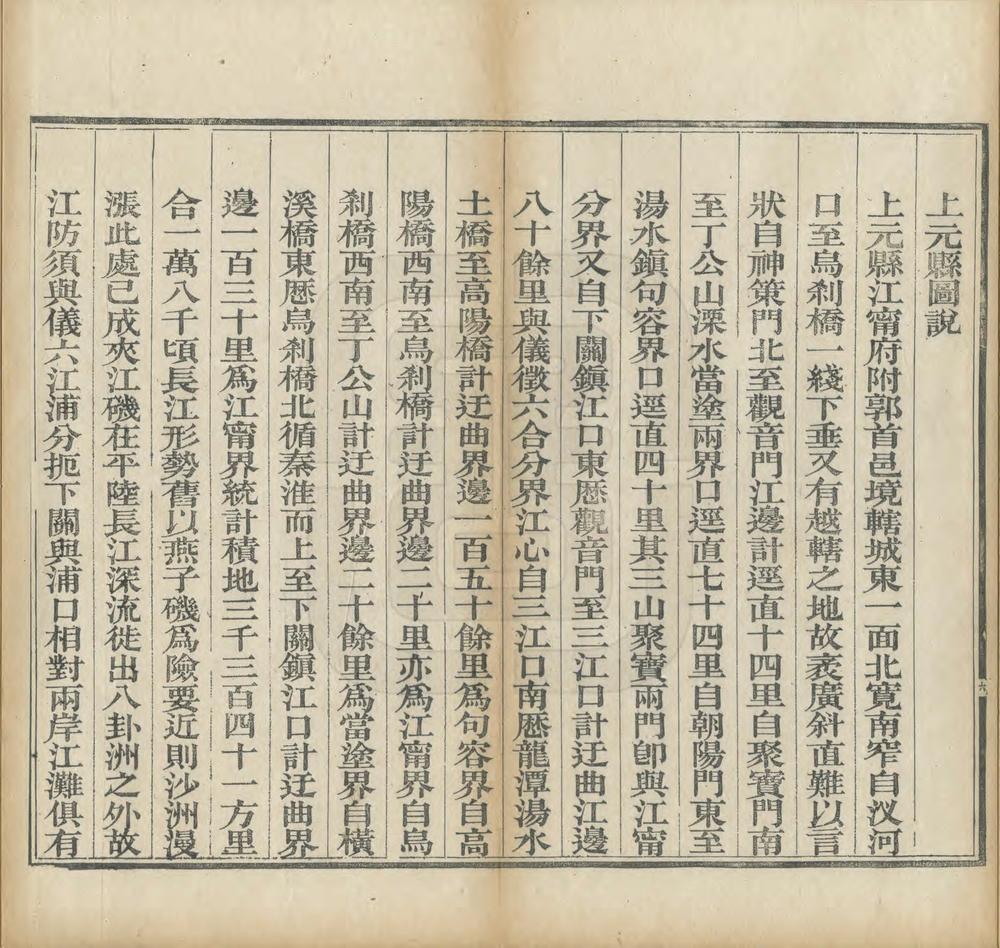 上元縣圖說
上元縣江甯府附郭首邑境轄城東一面北寬南窄自汊河
口至烏剎橋一綫下垂又有越轄之地故袤廣斜直難以言
狀自神策門北至觀音門江邊計逕直十四里自聚寶門南
至丁公山溧水當塗兩界口逕直七十四里自朝陽門東至
湯水鎭句容界口逕直四十里其三山聚寶兩門卽與江甯
分界又自下關鎭江口東歷觀音門至三江口計迂曲江邊
八十餘里與儀徵六合分界江心自三江口南歷龍潭湯水
土橋至高陽橋計迂曲界邊一百五十餘里爲句容界自高
陽橋西南至烏剎橋計迂曲界邊二十里亦爲江甯界自烏
剎橋西南至丁公山計迂曲界邊二十餘里爲當塗界自橫
溪橋東歷烏剎橋北循秦淮而上至下關鎭江口計迂曲界
邊一百三十里爲江甯界統計積地三千三百四十一方里
合一萬八千頃長江形勢舊以燕子磯爲險要近則沙洲漫
漲此處已成夾江磯在平陸長江深流徙出八卦洲之外故
江防須與儀六江浦分扼下關與浦口相對兩岸江灘俱有